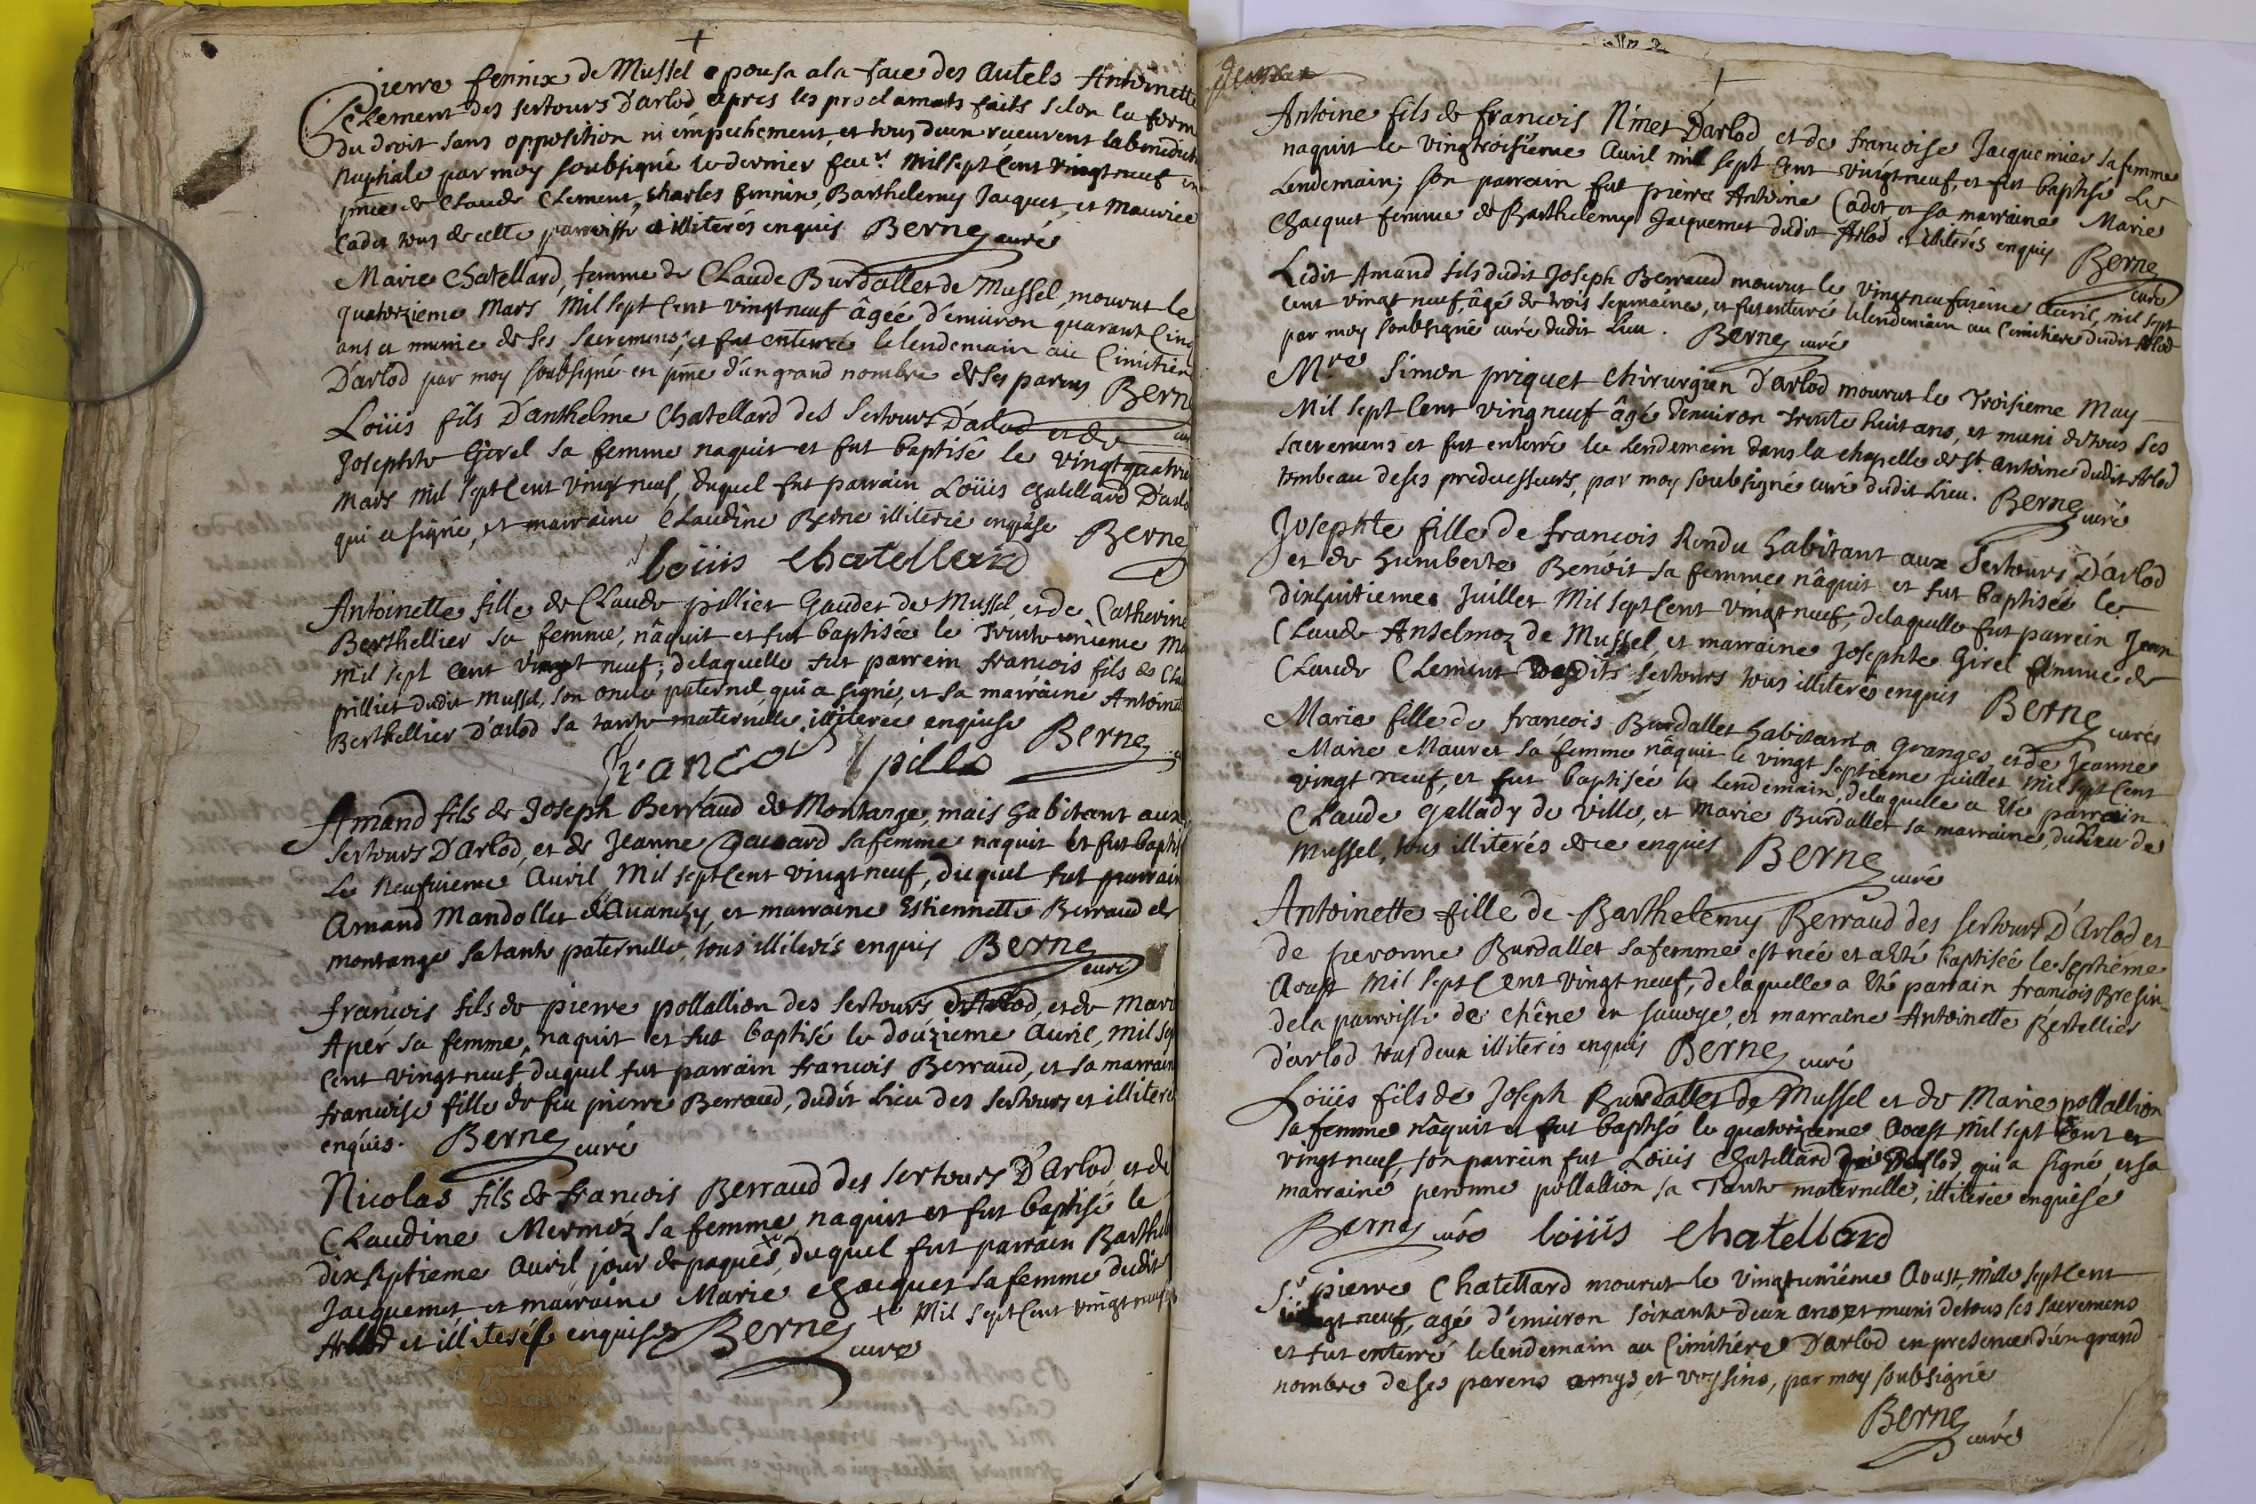 Pierre fennix de Mussel epousa a la face des autels Antoinette
Clement des sertours D'arlod apres les proclamats faits selon la form
du droit sans opposition ni empechement, et tous deux receurent la benedict
nuptiale par moy soubsigné le dernier feur. mil sept cent vingt neuf en
pnce de Claude Clement, charles fennix, Barthelemy Jacquet, et Maurice
Cadet tous de cette parroisse et illiterés enquis Berne curé
Marie Chatellard, femme de Claude Burdallet de Mussel, mourut le
quatorzieme Mars, Mil sept cent vingt neuf âgée d'environ quarant cinq
ans et munie de ses sacremens, et fut enterrée le lendemain au Cimitier
D'arlod par moy soubsigné en pnce d'un grand nombre de ses parens Berne
Loüis fils D'anthelme Chatellard des Sertours D'arlod et de
Josephte Girel sa femme naquit et fut baptisé le vingt quatri
Mars mil sept cent vingt neuf, duquel fut parrain Loüis chatellard D'arlo
qui a signé, et marraine Claudine Berne illiterée enquise Berne
loüis chatellard
Antoinette fille de Claude pilliet Gaudet de Mussel, et de Catherine
Berthellier sa femme, nâquit et fut baptisée le Trente unieme Ma
mil sept cent vingt neuf; de laquelle fut parrein francois fils de Cla
pilliet dudit Mussel, son oncle paternel, qui a signé, et sa marraine Antoine
Berthellier D'arlod sa tante maternelle illiteree enquise Berne
francoi pilla
Amand fils de Joseph Berraud de Montange, mais habitant aux
sertours D'Arlod, et de Jeanne sa femme naquit et fut baptis
Le neufvieme Avril Mil sept cent vingt neuf, duquel fut parrain
Amand Mandollet et marraine Estiennette Berraud de
montange sa tante paternelle, tous illiterés enquis Berne curé
francois fils de pierre pollallion des sertours D'Arlod, et de Mari
Aper sa femme, naquit et fut baptisé le douzieme Avril, mil sep
cent vingt neuf, duquel fut parrain francois Berraud, et sa marrain
francoise fille de feu pierre Berraud, dudit Lieu des sertours et illiteré
enquis. Berne curé
Nicolas fils de francois Berraud des sertours D'Arlod, et de
Claudine Mermoz sa femme, naquit et fut baptisé le
dix septieme avril jour de paques, duquel fut parrain Barthel
Jacquemet, et marraine Marie chacquet sa femme dudit
Arlod et illiterés enquis Berne curé + Mil sept cent vingt neuf
Antoine fils de francois Nmet D'arlod et de francoise Jacquemier sa femme
naquit le vingtroisieme Avril mil sept cent vingt neuf, et fut baptisé Le
Lendemain; son parrain fut pierre Antoine Cadet et sa marraine Marie
Chacquet femme de Barthelemy Jacquemet dudit Arlod et illiterés enquis Berne curé
Ledit Amand fils dudit Joseph Berraud mourut le vingt neufvieme Avril, mil sept
cent vingt neuf, âgé de trois sepmaines, et fut enterré le lendemain au Cimitiere dudit Arlod
par moy soubsigné curé dudit Lieu. Berne curé
Mre Simon priquet Chirurgien D'arlod mourut le Troisieme May
Mil sept cent vingt neuf âgé d'environ trente huit ans, et muni de tous ses
sacremens et fut enterré le Lendemain dans la chapelle de St. Antoine dudit Arlod
tombeau de ses predecesseurs, par moy soubsigné curé dudit Lieu. Berne curé
Josephte fille de francois Rendu habitant aux Sertours D'arlod
et de humberte Benoit sa femme nâquit et fut baptisée le
dixhuitieme Juillet Mil sept cent vingt neuf; de laquelle fut parrein Jean
Claude Anselmoz de Mussel, et marraine Josephte Girel femme de
Claude Clement desdits sertours tous illiterés enquis Berne curé
Marie fille de francois Burdallet habitant a Granges, et de Jeanne
Marie Mauret sa femme nâquit le vingt septieme juillet mil sept cent
vingt neuf, et fut baptisée le Lendemain, de laquelle a été parrain
Claude Gallady de Ville, et Marie Burdallet sa marraine, du Lieu de
Mussel, tous illiterés de ce enquis Berne curé
Antoinette fille de Barthelemy Berraud des sertours D'Arlod et
de peronne Burdallet sa femme est née et a été baptisée le septieme
Aoust mil sept cent vingt neuf, de laquelle a été parrain francois Bresin
de la parroisse de chêne en savoye, et marraine Antoinette Bertellier
d'arlod tous deux illiterés enquis Berne curé
Loüis fils de Joseph Burdallet de Mussel et de Marie pollallion
sa femme nâquit et fut baptisé le quatorzieme Aoust mil sept cent et
vingt neuf, son parrein fut Loüis Chatellard D'arlod, qui a signé, et sa
marraine peronne pollallion sa Tante maternelle, illiterée enquise
Berne curé loüis chatellard
Sr. pierre Chatellard mourut le vingtunieme Aoust, mille sept cent
vingt neuf, agé d'environ soixante deux ans et muni de tous ses sacremens
et fut enterré le lendemain au Cimitiére D'arlod en presence d'un grand
nombre de ses parens amys et voysins, par moy soubsigné
Berne curé